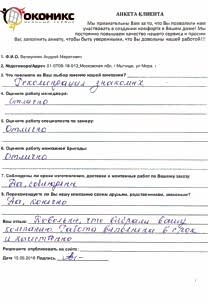 ОКОНИКС
АНКЕТА КЛИЕНТА
Мы признательны Вам за то, что Вы позволили нам
участвовать в создании комфорта в Вашем доме! Мы
постоянно повышаем качество нашего сервиса и просим
Вас, заполнить анкету, чтобы быть уверенными, что Вы довольны нашей работой!!!
1. Ф.И.О.
2. №договора/Адрес
3. Что повлияло на Ваш выбор именно нашей компании?
Рекомендация знакомых
4. Оцените работу менеджера:
Отлично
5. Оцените работу специалиста по замеру:
Отлично
6. Оцените работу монтажной бригады:
Отлично
7. Соблюдены ли сроки изготовления, доставки и монтажных работ по Вашему заказу
Да, соблюдены
8. Порекомендуете ли Вы нашу компанию своим друзьям, родственникам, знакомым?
Да, конечно
Ваш отзыв: Довольны, что выбрали вашу
компанию. Работа выполнена в срок
и качественно
Разрешите опубликовать на сайте:
Дата 15.09.2016 Подпись